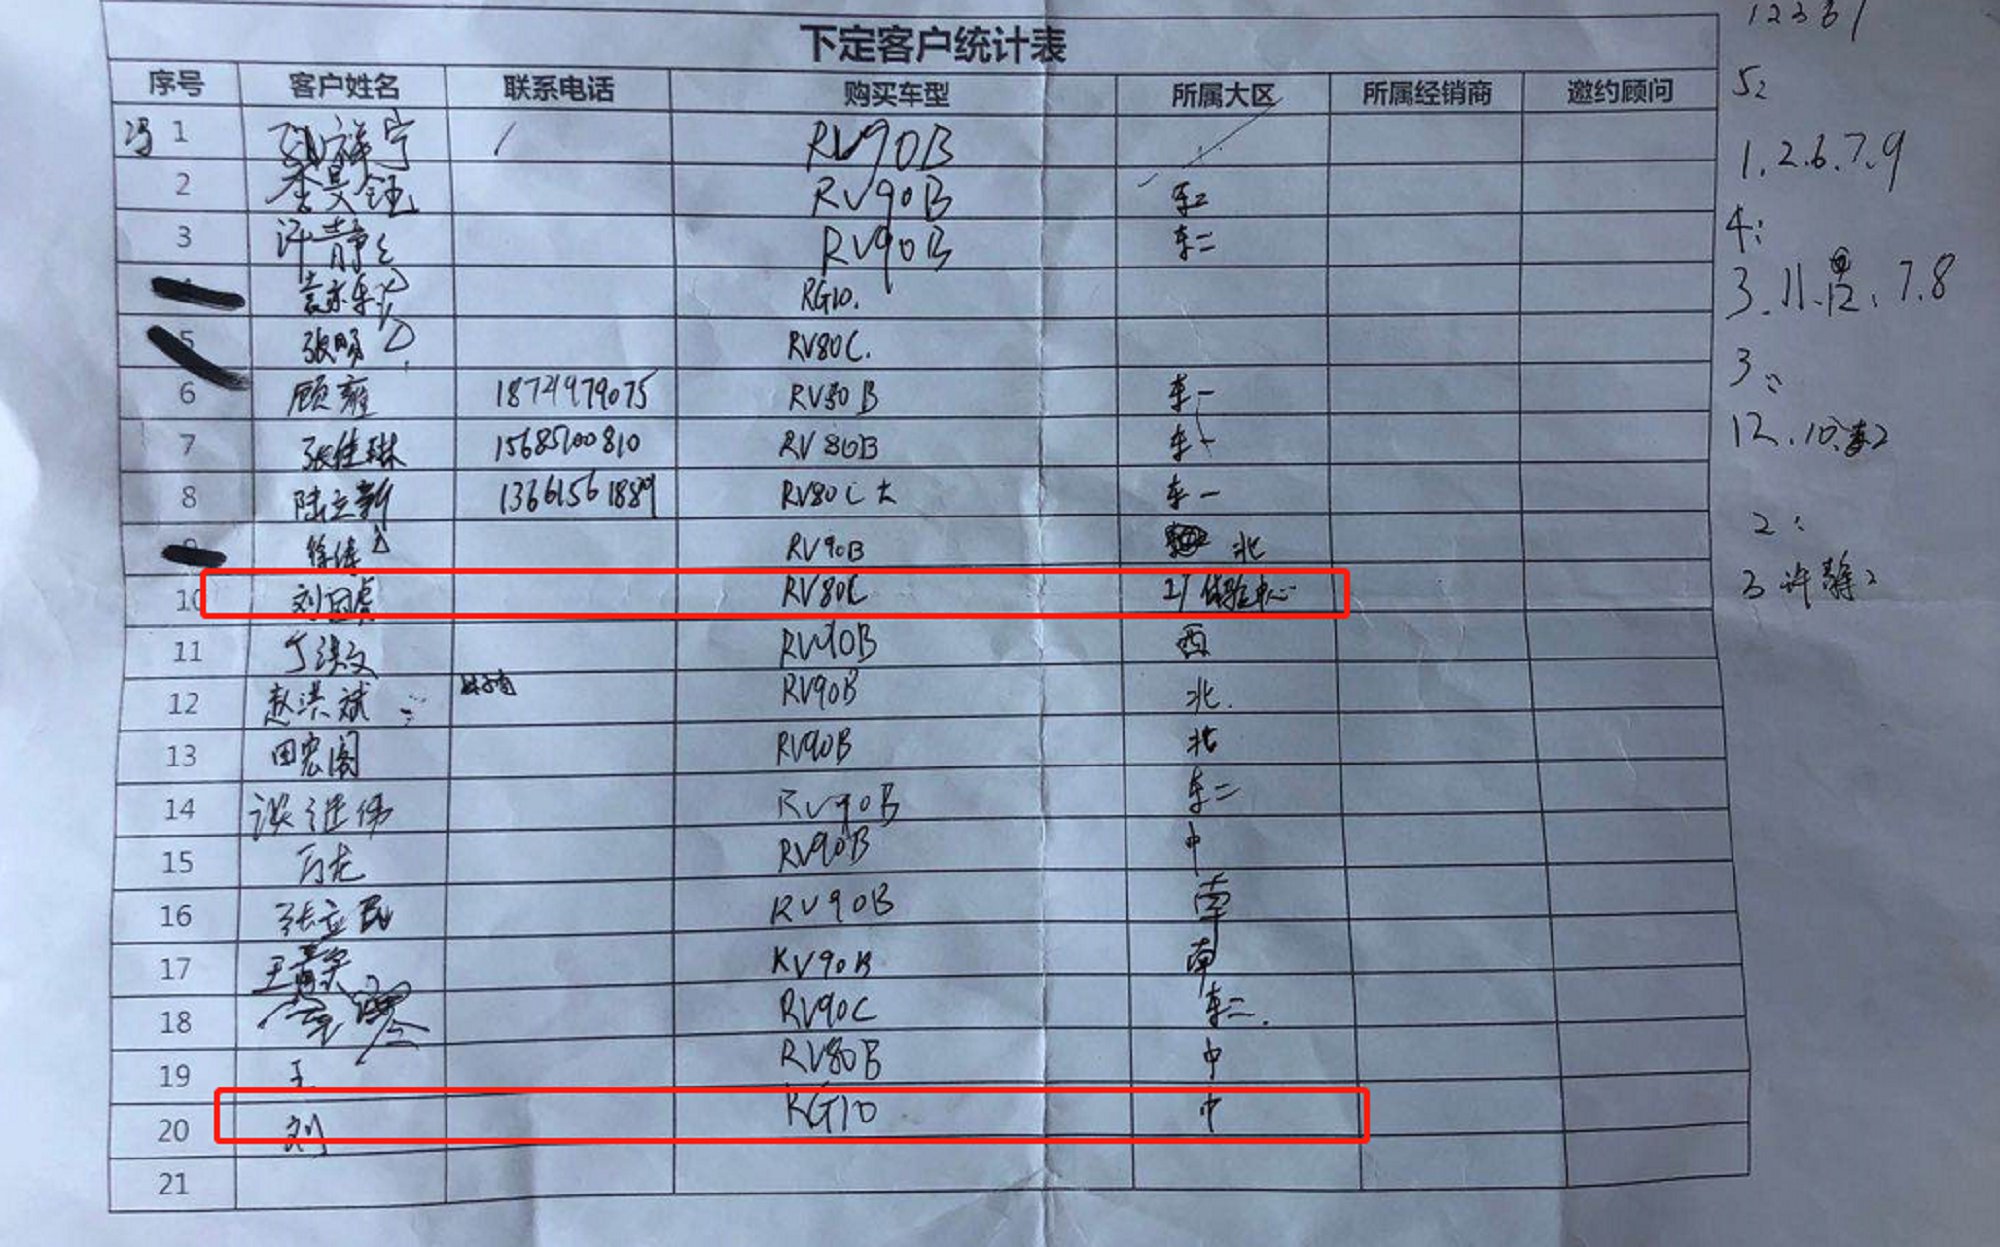 下定客户统计表
序号 客户姓名 联系电话 购买车型 所属大区 所属经销商 邀约顾问
冯 1 祥宁 RV90B
2 李昊钰 RV90B 东二
3 许静 RV90B 东二
袁 RG10.
5 张明 RV80C.
6 顾雍 18721979075 RV80B 东一
7 张佳琳 15685700810 RV80B 东一
8 陆立新 13661561889 RV80C 大 东一
9 徐涛 RV90B 北
10 刘国虎 RV80C 工厂体验中心
11 丁洪文 RV90B 西
12 赵洪斌 RV90B 北.
13 田宏阁 RV90B 北
14 谈继伟 RV90B 东二
15 万龙 RV90B 中
16 张立民 RV90B 南
17 王 RV90B 南
18 RV90C 东二.
19 王 RV80B 中
20 刘 RG10 中
21
12331
52
1.2.6.7.9
4:
3.11.12.7.8
3:
12.10.东2
2:
3 许静2